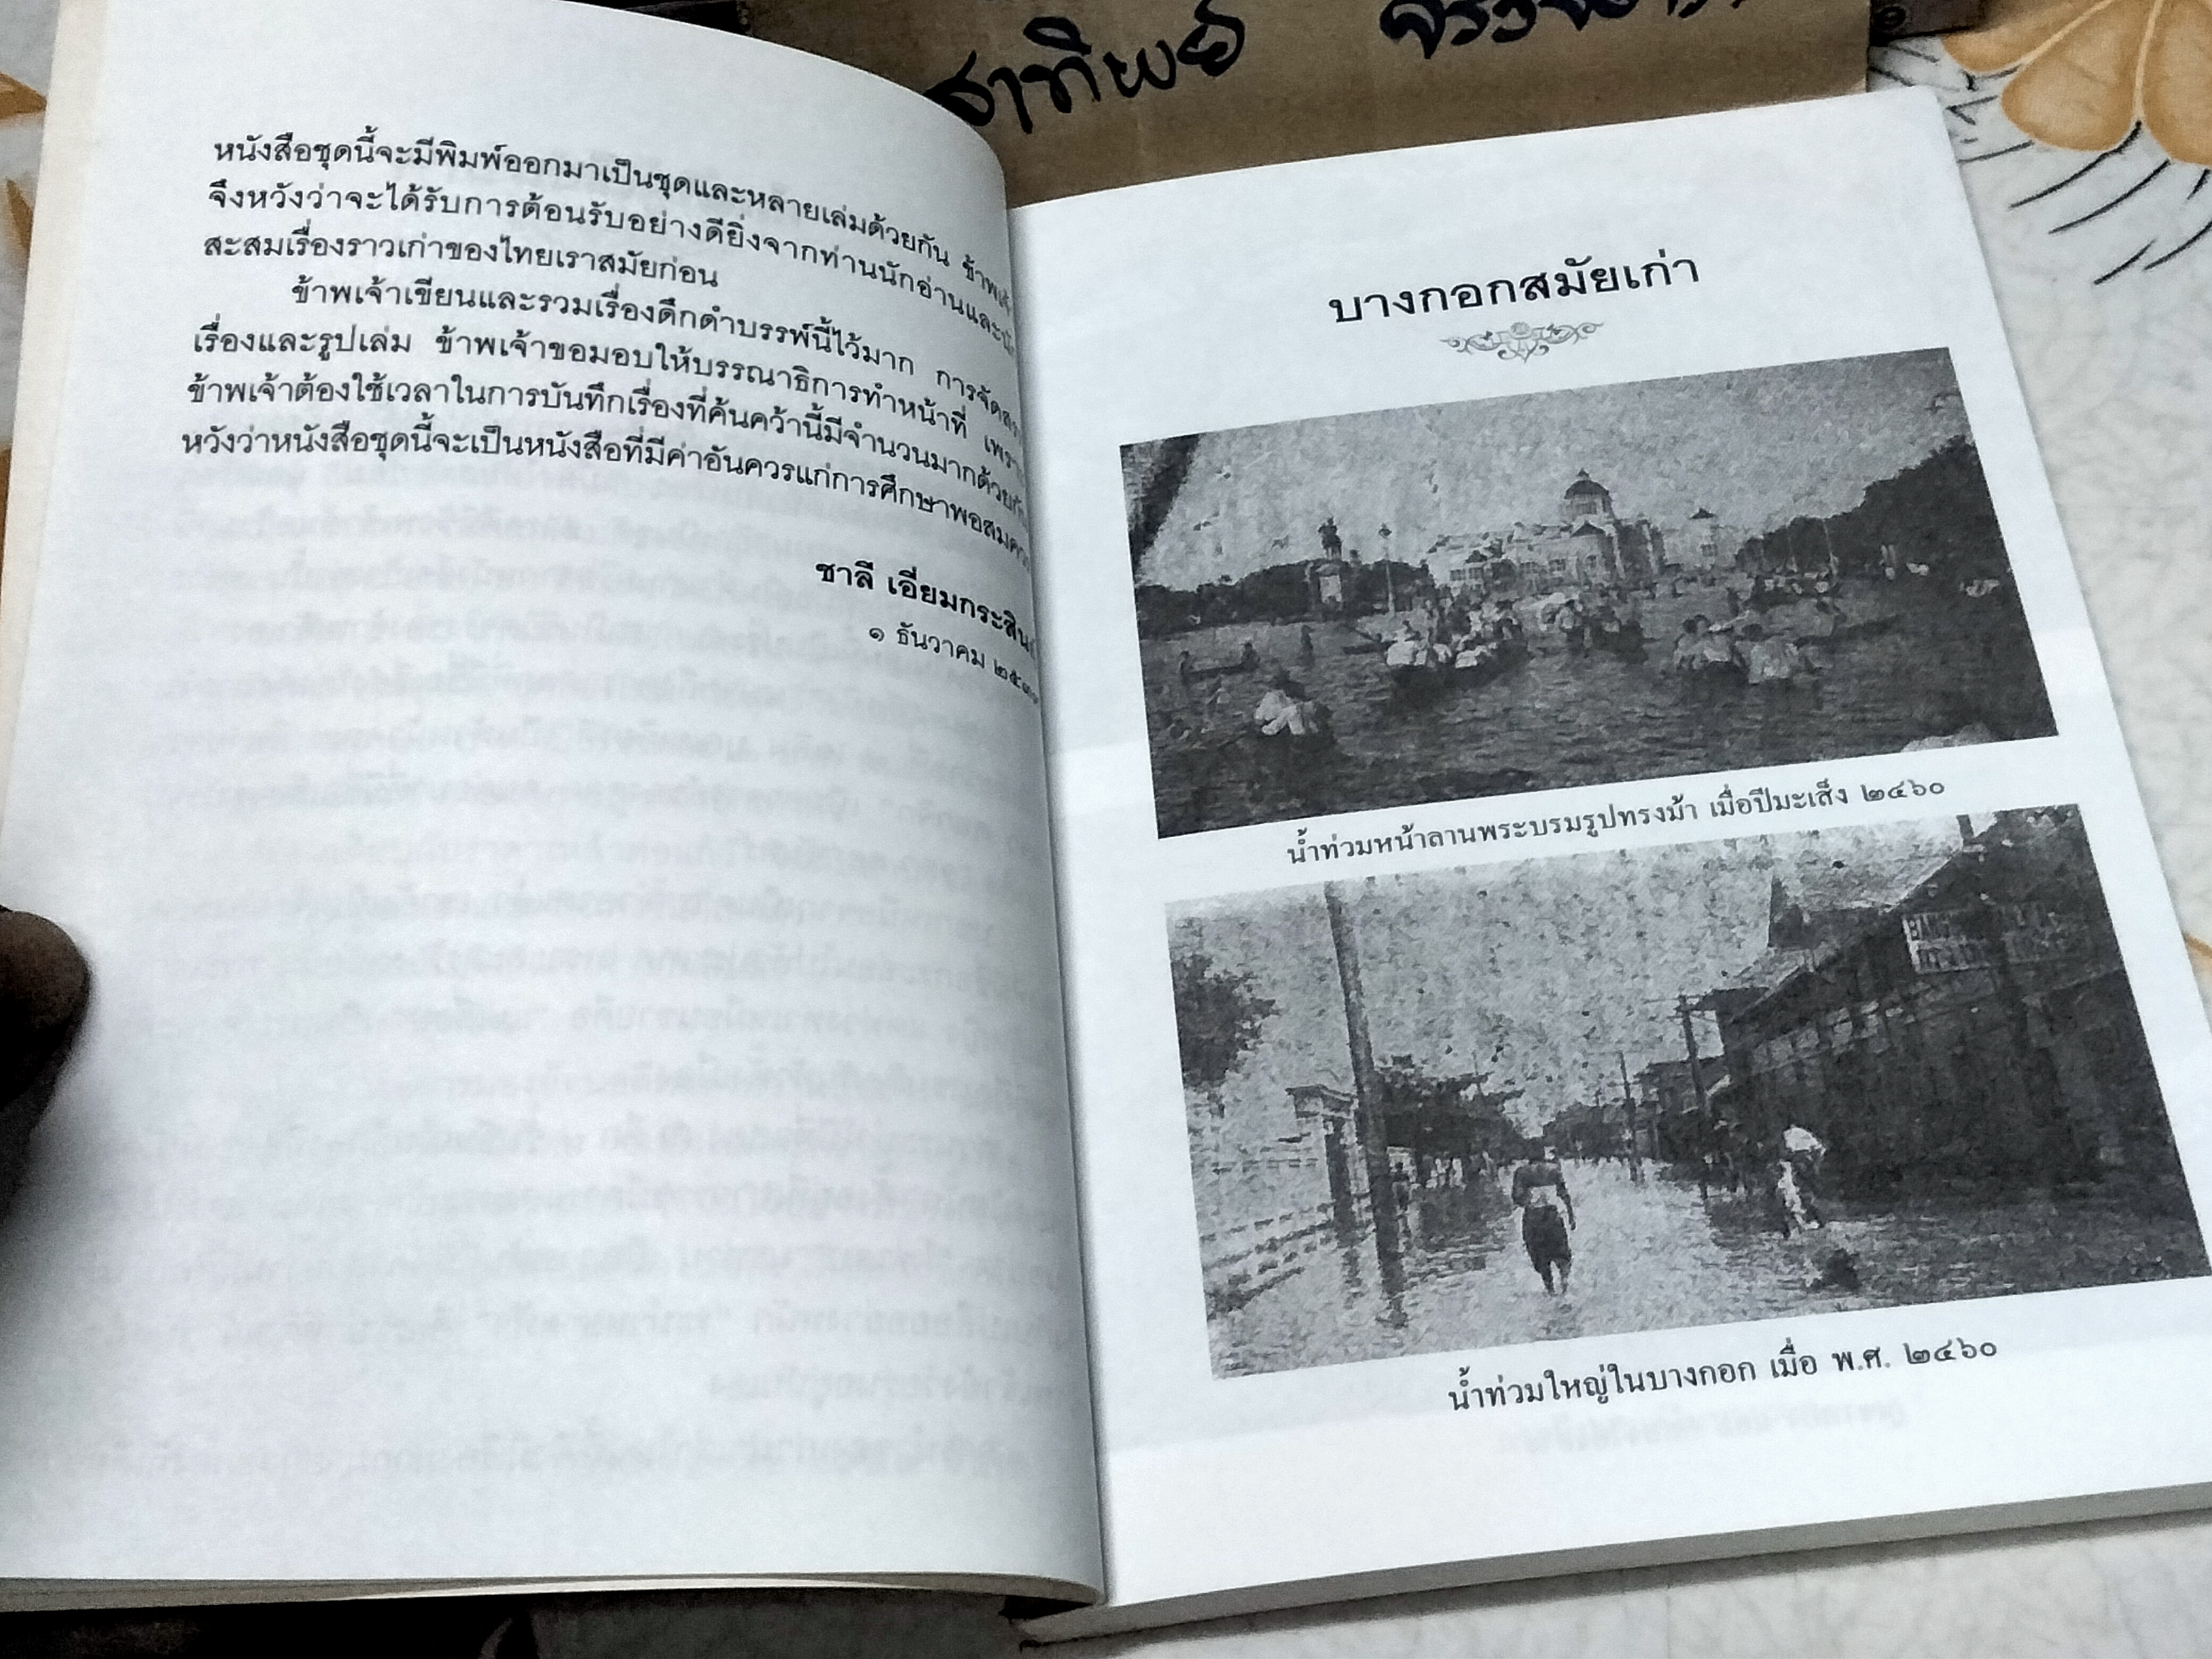 สาทิพย์
หนังสือชุดนี้จะมีพิมพ์ออกมาเป็นชุดและหลายเล่มด้วยกัน ข้าพเจ้า
จึงหวังว่าจะได้รับการต้อนรับอย่างดียิ่งจากท่านนักอ่านและนัก
สะสมเรื่องราวเก่าของไทยเราสมัยก่อน
ข้าพเจ้าเขียนและรวมเรื่องดึกดำบรรพ์นี้ไว้มาก การจัดสรร
เรื่องและรูปเล่ม ข้าพเจ้าขอมอบให้บรรณาธิการทำหน้าที่ เพราะ
ข้าพเจ้าต้องใช้เวลาในการบันทึกเรื่องที่ค้นคว้านี้มีจำนวนมากด้วยกัน
หวังว่าหนังสือชุดนี้จะเป็นหนังสือที่มีค่าอันควรแก่การศึกษาพอสมควร
ชาลี เอี่ยมกระสินธุ์
๑ ธันวาคม
บางกอกสมัยเก่า
น้ำท่วมหน้าลานพระบรมรูปทรงม้า เมื่อปีมะเส็ง ๒๔๖๐
น้ำท่วมใหญ่ในบางกอก เมื่อ พ.ศ. ๒๔๖๐